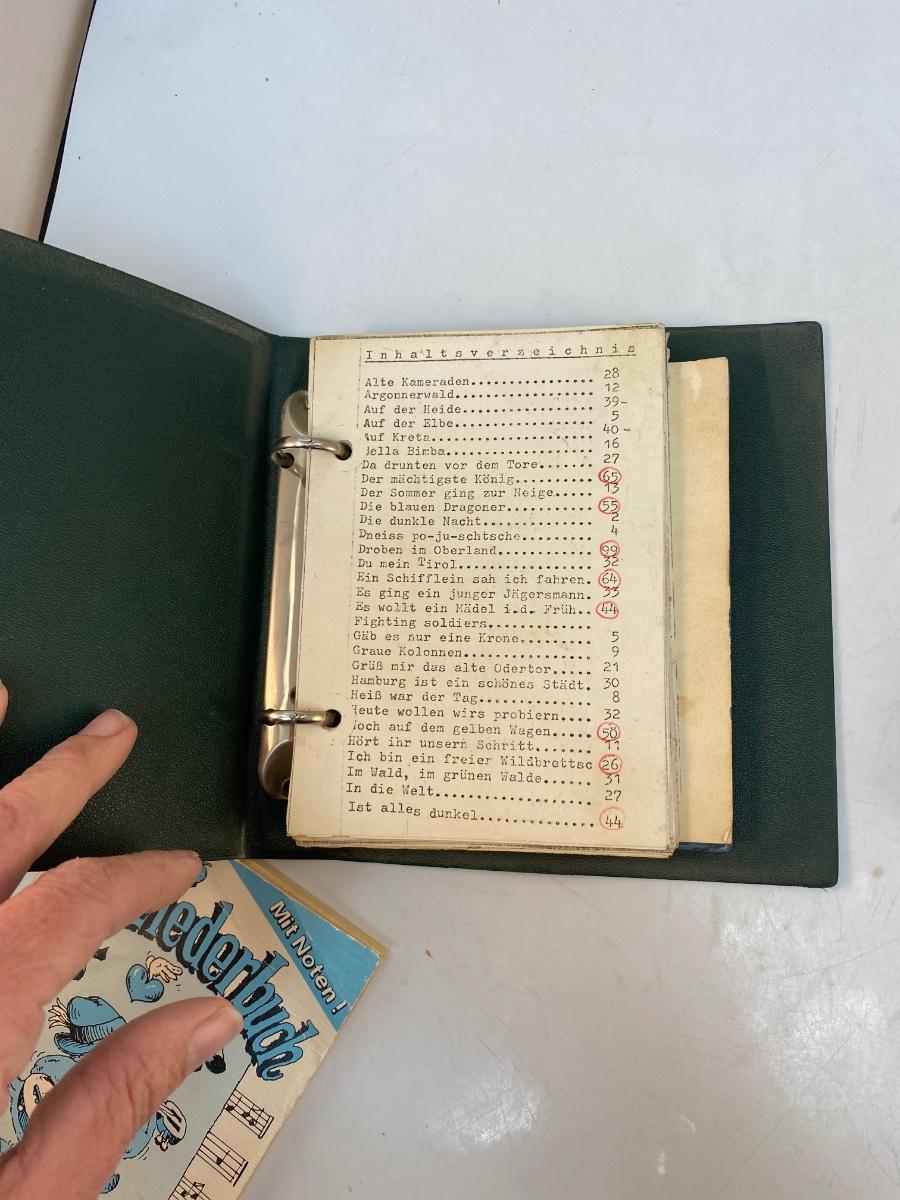 Inhaltsverzeichnis
Alte Kameraden............... 28
Argonnerwald................. 12
Auf der Heide................ 39-
Auf der Elbe................. 5
Auf Kreta.................... 40-
Bella Bimba.................. 16
Da drunten vor dem Tore...... 27
Der mächtigste König......... 65
Der Sommer ging zur Neige.... 13
Die blauen Dragoner.......... 55
Die dunkle Nacht............. 2
Dneiss po-ju-schtsche........ 4
Droben im Oberland........... 99
Du mein Tirol................ 32
Ein Schifflein sah ich fahren. 64
Es ging ein junger Jägersmann. 33
Es wollt ein Mädel i.d. Früh.. 44
Fighting soldiers............
Gäb es nur eine Krone........ 5
Graue Kolonnen............... 9
Grüß mir das alte Odertor.... 21
Hamburg ist ein schönes Städt. 30
Heiß war der Tag............. 8
Heute wollen wirs probiern.... 32
Hoch auf dem gelben Wagen.... 58
Hört ihr unsern Schritt...... 11
Ich bin ein freier Wildbrettsc 26
Im Wald, im grünen Walde..... 31
In die Welt.................. 27
Ist alles dunkel............. 44
Mit Noten!
liederbuch